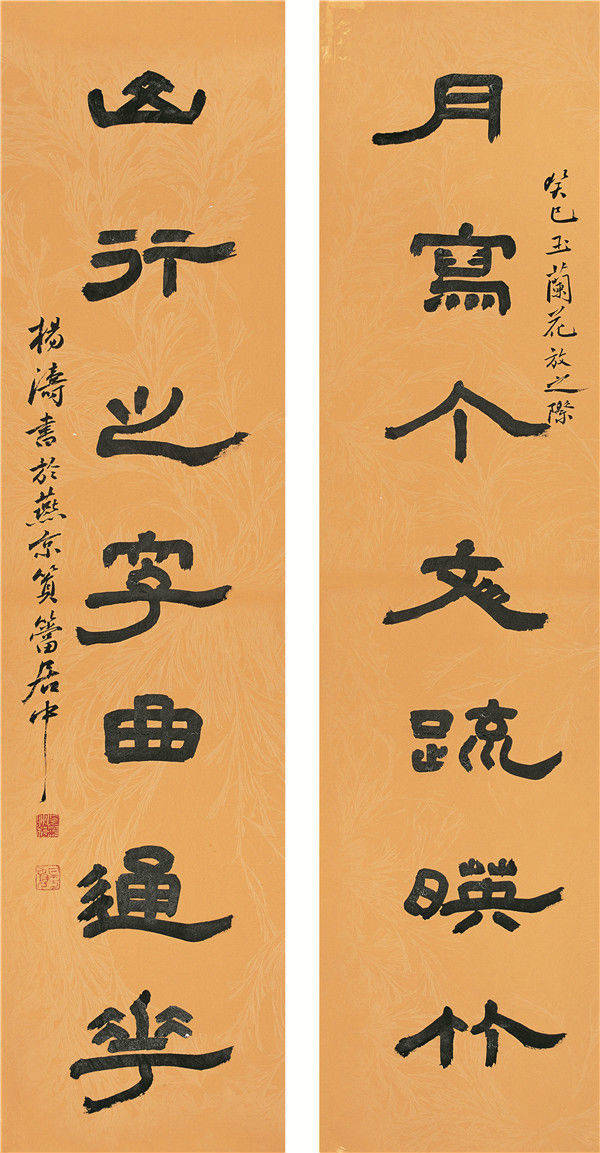 癸巳玉蘭花放之際
月寫个文疏暎竹
山行之字曲通華
楊濤書於燕京篔簹居中